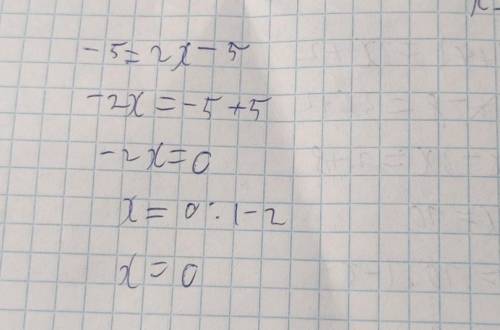 -5=2x-5
-2x=-5+5
-2x=0
x=0:1-2
x=0